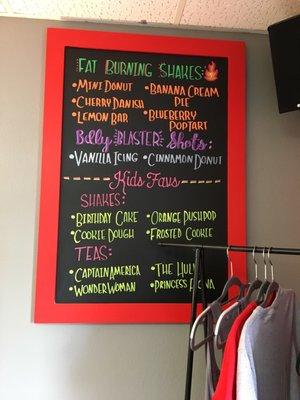 FAT BURNING SHAKES
•MINI DONUT •BANANA CREAM PIE
•CHERRY DANISH
•LEMON BAR •BLUEBERRY POPTART
Belly BLASTER Shots:
•VANILLA ICING •CINNAMON DONUT
Kids Favs
SHAKES:
•BIRTHDAY CAKE •ORANGE PUSHPOP
•COOKIE DOUGH •FROSTED COOKIE
TEAS:
•CAPTAIN AMERICA •THE HULK
•WONDER WOMAN •PRINCESS